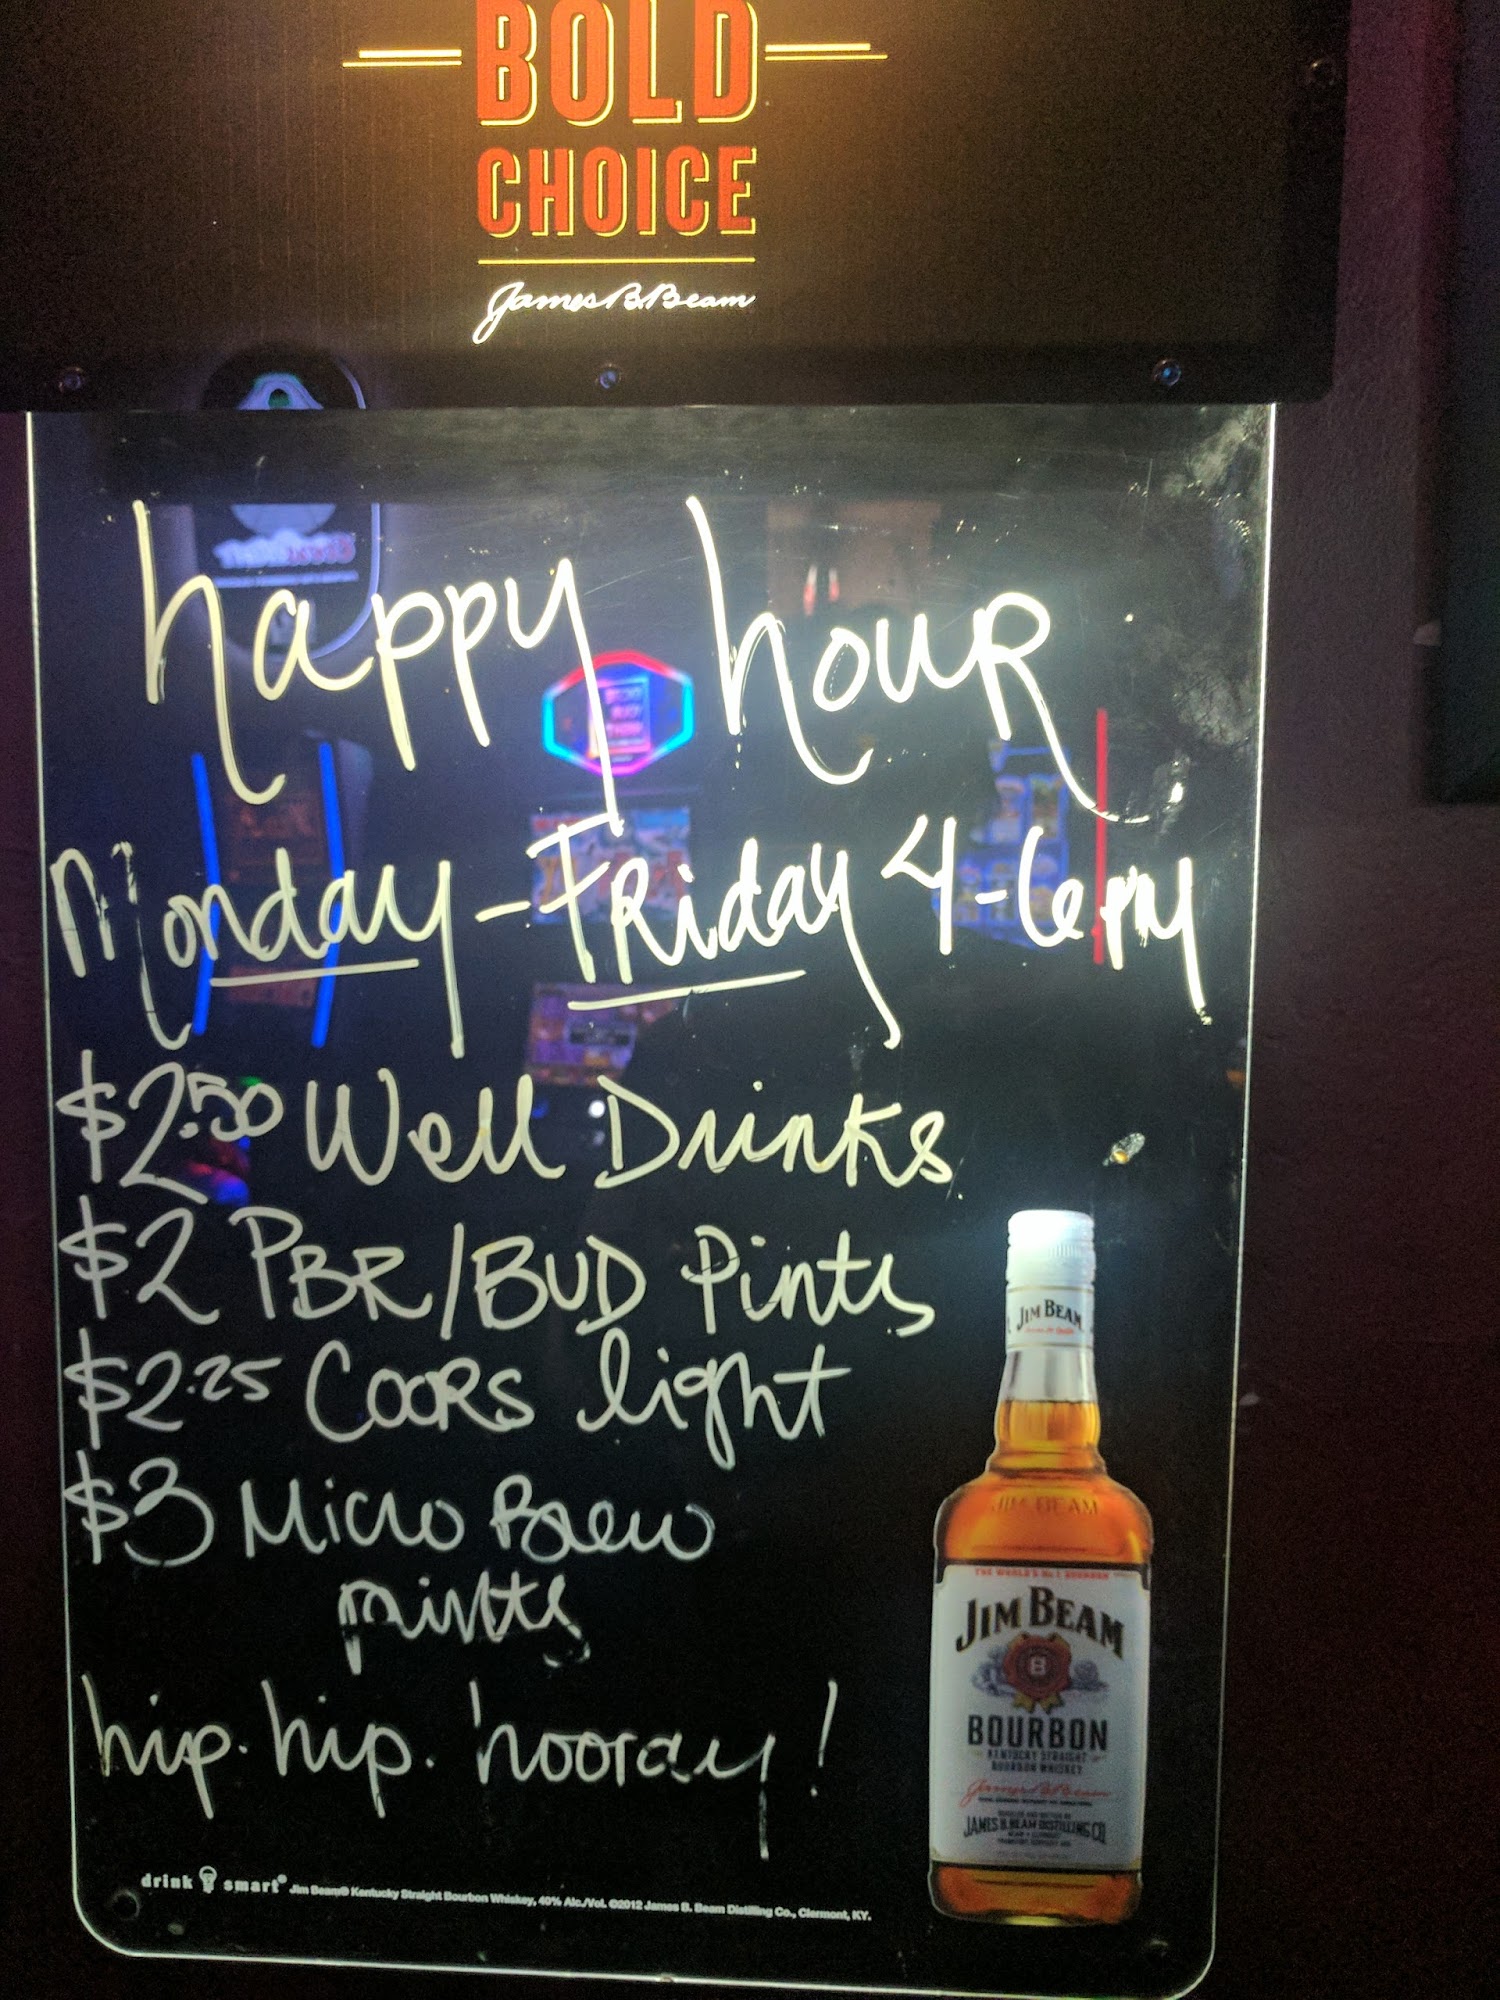 BOLD
CHOICE
James B. Beam
happy hour
Monday - Friday 4-6pm
$2.50 Well Drinks
$2 PBR/BUD Pints
$2.25 Coors light
$3 Micro Brew
pints
hip. hip. hooray!
JIM BEAM
JIM BEAM
THE WORLD'S No. 1 BOURBON
JIM BEAM
B
BOURBON
KENTUCKY STRAIGHT
BOURBON WHISKEY
James B. Beam
JAMES B. BEAM DISTILLING CO.
drink smart® Jim Beam® Kentucky Straight Bourbon Whiskey, 40% Alc./Vol. ©2012 James B. Beam Distilling Co., Clermont, KY.